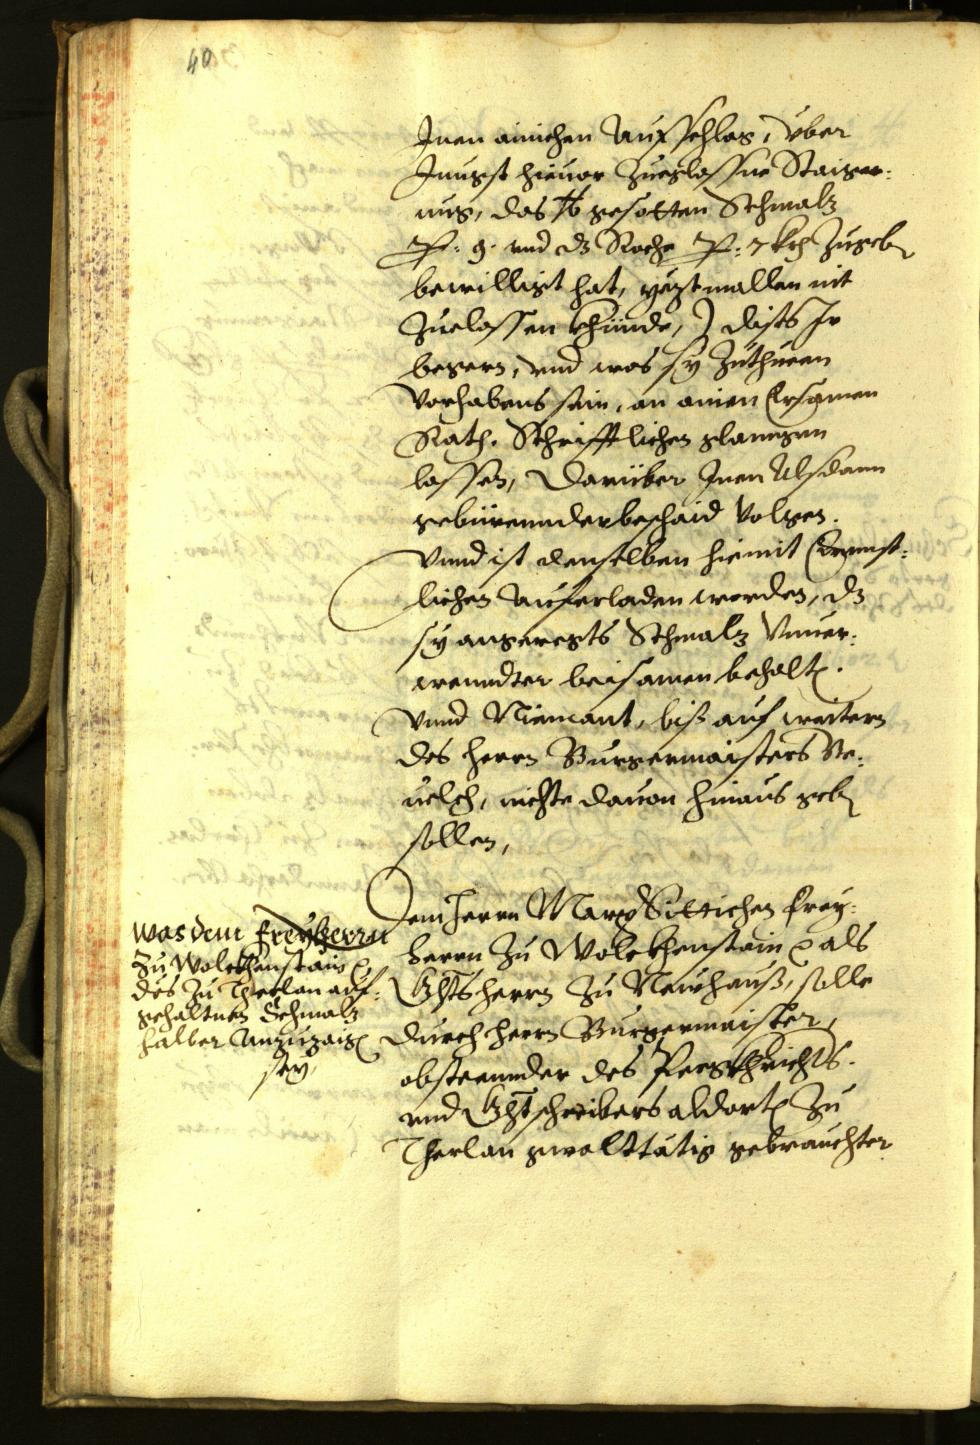 40
Inen ainichen Aufschlag, vber
Jungst hieuor Zuegelassne Staiger:
ung, das lb gesotten Schmalz
P: 9. vnd dz Roche P: 7 kr Zugeben
bewilligt hat, yezt mallen nit
Zuelassen khünde, Ir
begern, vnd was sy Zuthueen
Vorhabens sein, an ainen Ersamen
Rath, Schrifftlichen glanngen
lassen, Darüber Inen Alsdann
gebürennder beschaid Volgen.
Vnnd ist denselben hiemit Ernnst:
lichen Auferladen worden, dz
sy angeregts Schmalz Vnuer:
wenndter beisamen behalten.
Vnnd Niemant, biß auf weitern
des herrn Burgermaisters Be:
uelch, nichts dauon hinaus geben
sollen,
Was dem Freyherrn
Zu Wolckhenstain
des Zu Therlan auf:
gehaltnen Schmalz
halber Anzuzaigen
sey.
Dem Herrn Marx Sittichen Frey:
herrn Zu Wolckhenstain als
Ghtsherrn Zu Newhauß, solle
durch herrn Burgermaister,
obsteennder des Pergkhrichts.
vnd Ghtschreibers aldorten Zu
Therlan gwalttätig gebrauchter